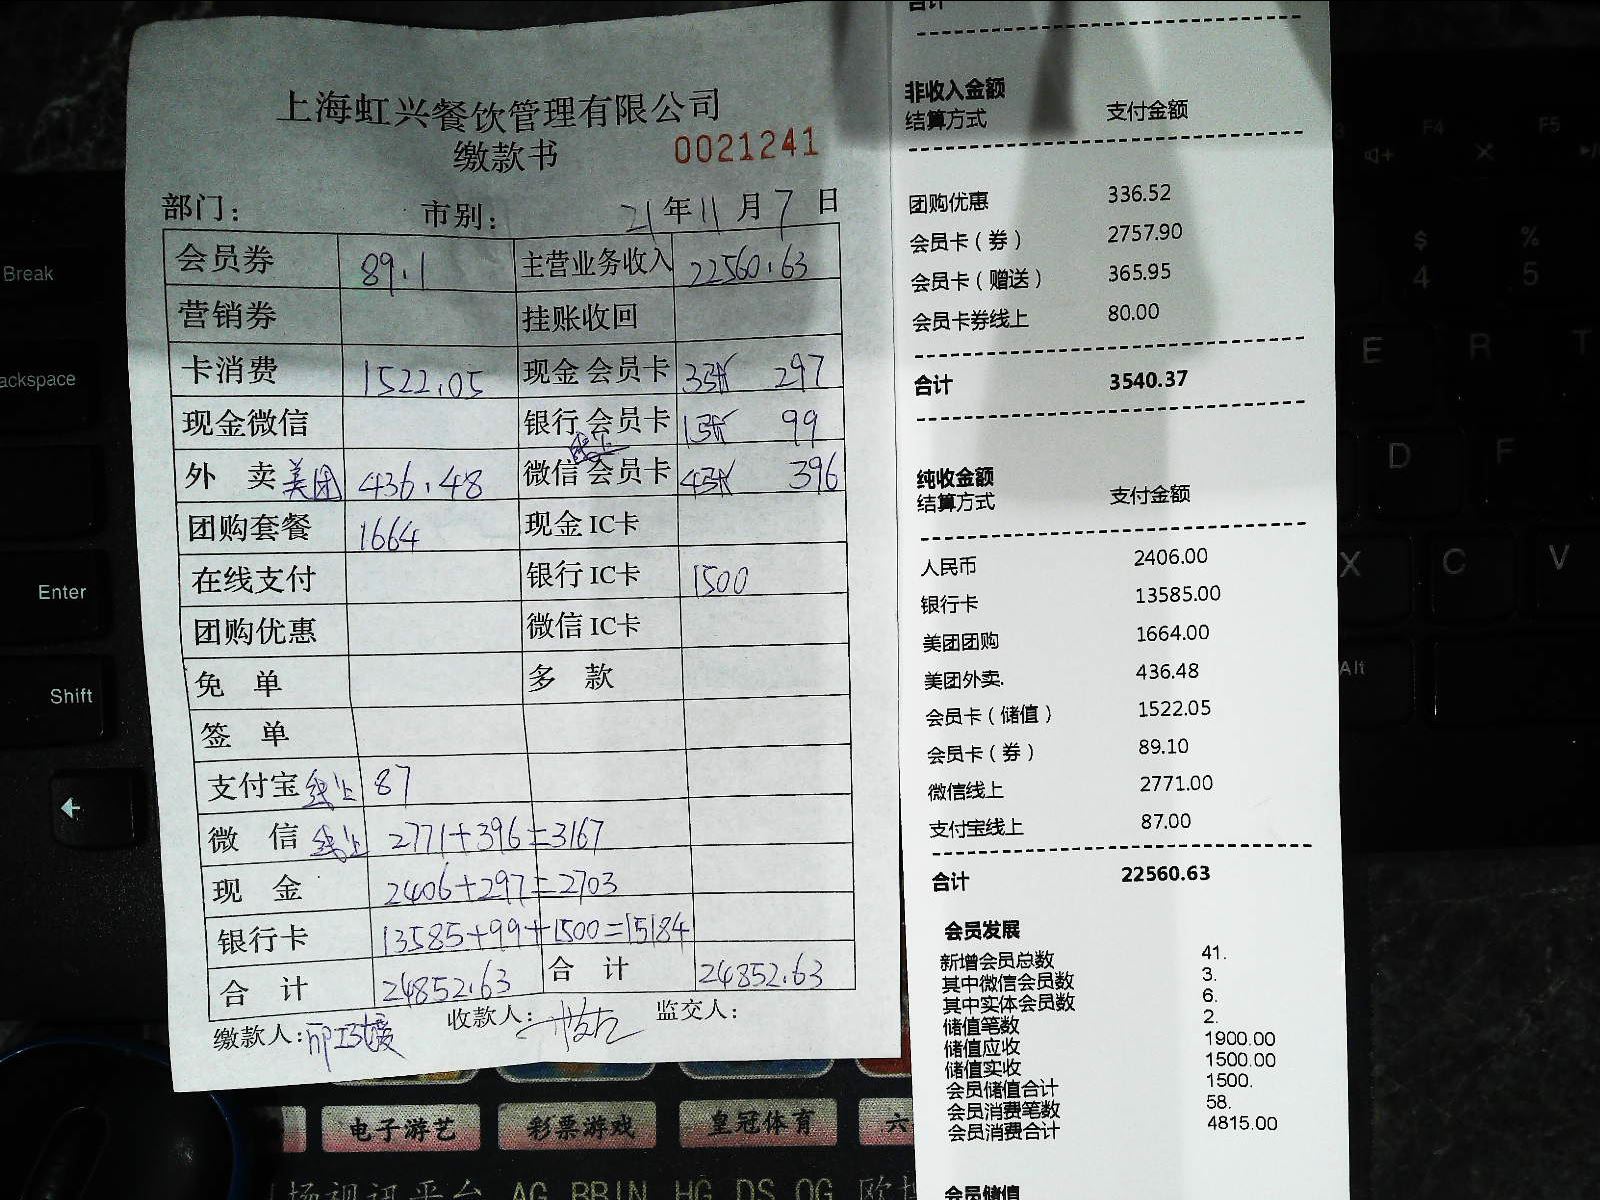 上海虹兴餐饮管理有限公司
缴款书 0021241
部门： 市别： 21年11月7日
会员券 89.1 主营业务收入 22560.63
营销券 挂账收回
卡消费 1522.05 现金会员卡 3张 297
现金微信 银行会员卡 1张 99
外 卖 美团 436.48 微信会员卡 线上 4张 396
团购套餐 1664 现金IC卡
在线支付 银行IC卡 1500
团购优惠 微信IC卡
免 单 多 款
签 单
支付宝 线上 87
微 信 线上 2771+396=3167
现 金 2406+297=2703
银行卡 13585+99+1500=15184
合 计 24852.63 合 计 24852.63
缴款人： 收款人： 监交人：
合计
非收入金额
结算方式 支付金额
团购优惠 336.52
会员卡（券） 2757.90
会员卡（赠送） 365.95
会员卡券线上 80.00
合计 3540.37
纯收金额
结算方式 支付金额
人民币 2406.00
银行卡 13585.00
美团团购 1664.00
美团外卖. 436.48
会员卡（储值） 1522.05
会员卡（券） 89.10
微信线上 2771.00
支付宝线上 87.00
合计 22560.63
会员发展
新增会员总数 41.
其中微信会员数 3.
其中实体会员数 6.
储值笔数 2.
储值应收 1900.00
储值实收 1500.00
会员储值合计 1500.
会员消费笔数 58.
会员消费合计 4815.00
会员储值
Break
Backspace
Enter
Shift
F4
F5
$
4
%
5
E
R
T
D
F
X
C
V
Alt
电子游艺 彩票游戏 皇冠体育 六
场视讯平台 AG BBIN HG DS OG 欧